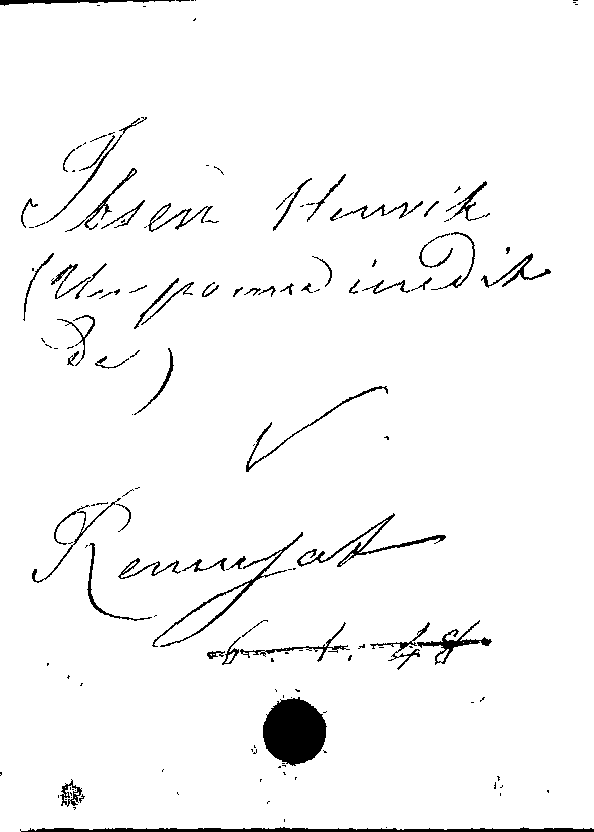 Ibsen Henrik
(Un poeme inedit
de)
V.
Remusat
6. 1. 48